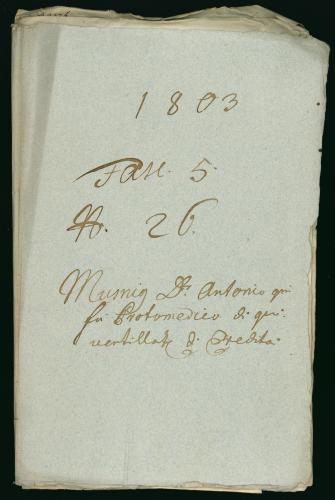 1803
Fasc. 5.
N. 26.
Musnig Dr. Antonio qui
fù Protomedico di qui:
ventillatae di Eredità.